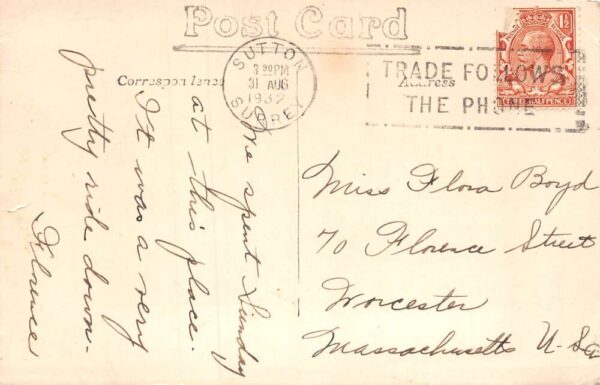 Post Card
Correspondence
Address
SUTTON
3 30PM
31 AUG
1932
SURREY
TRADE FOLLOWS
THE PHONE
1½
THREE HALFPENCE
We spent Sunday
at this place.
It was a very
pretty ride down.
Florence
Miss Flora Boyd
70 Florence Street
Worcester
Massachusetts U.S.A